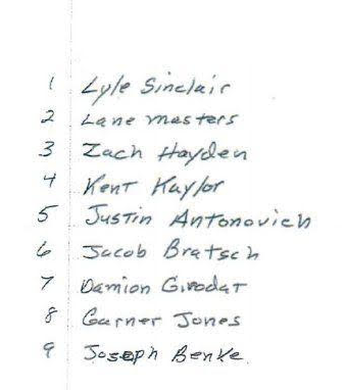 1 Lyle Sinclair
2 Lane Masters
3 Zach Hayden
4 Kent Kaylor
5 Justin Antonovich
6 Jacob Bratsch
7 Damion Girodat
8 Garner Jones
9 Joseph Benke